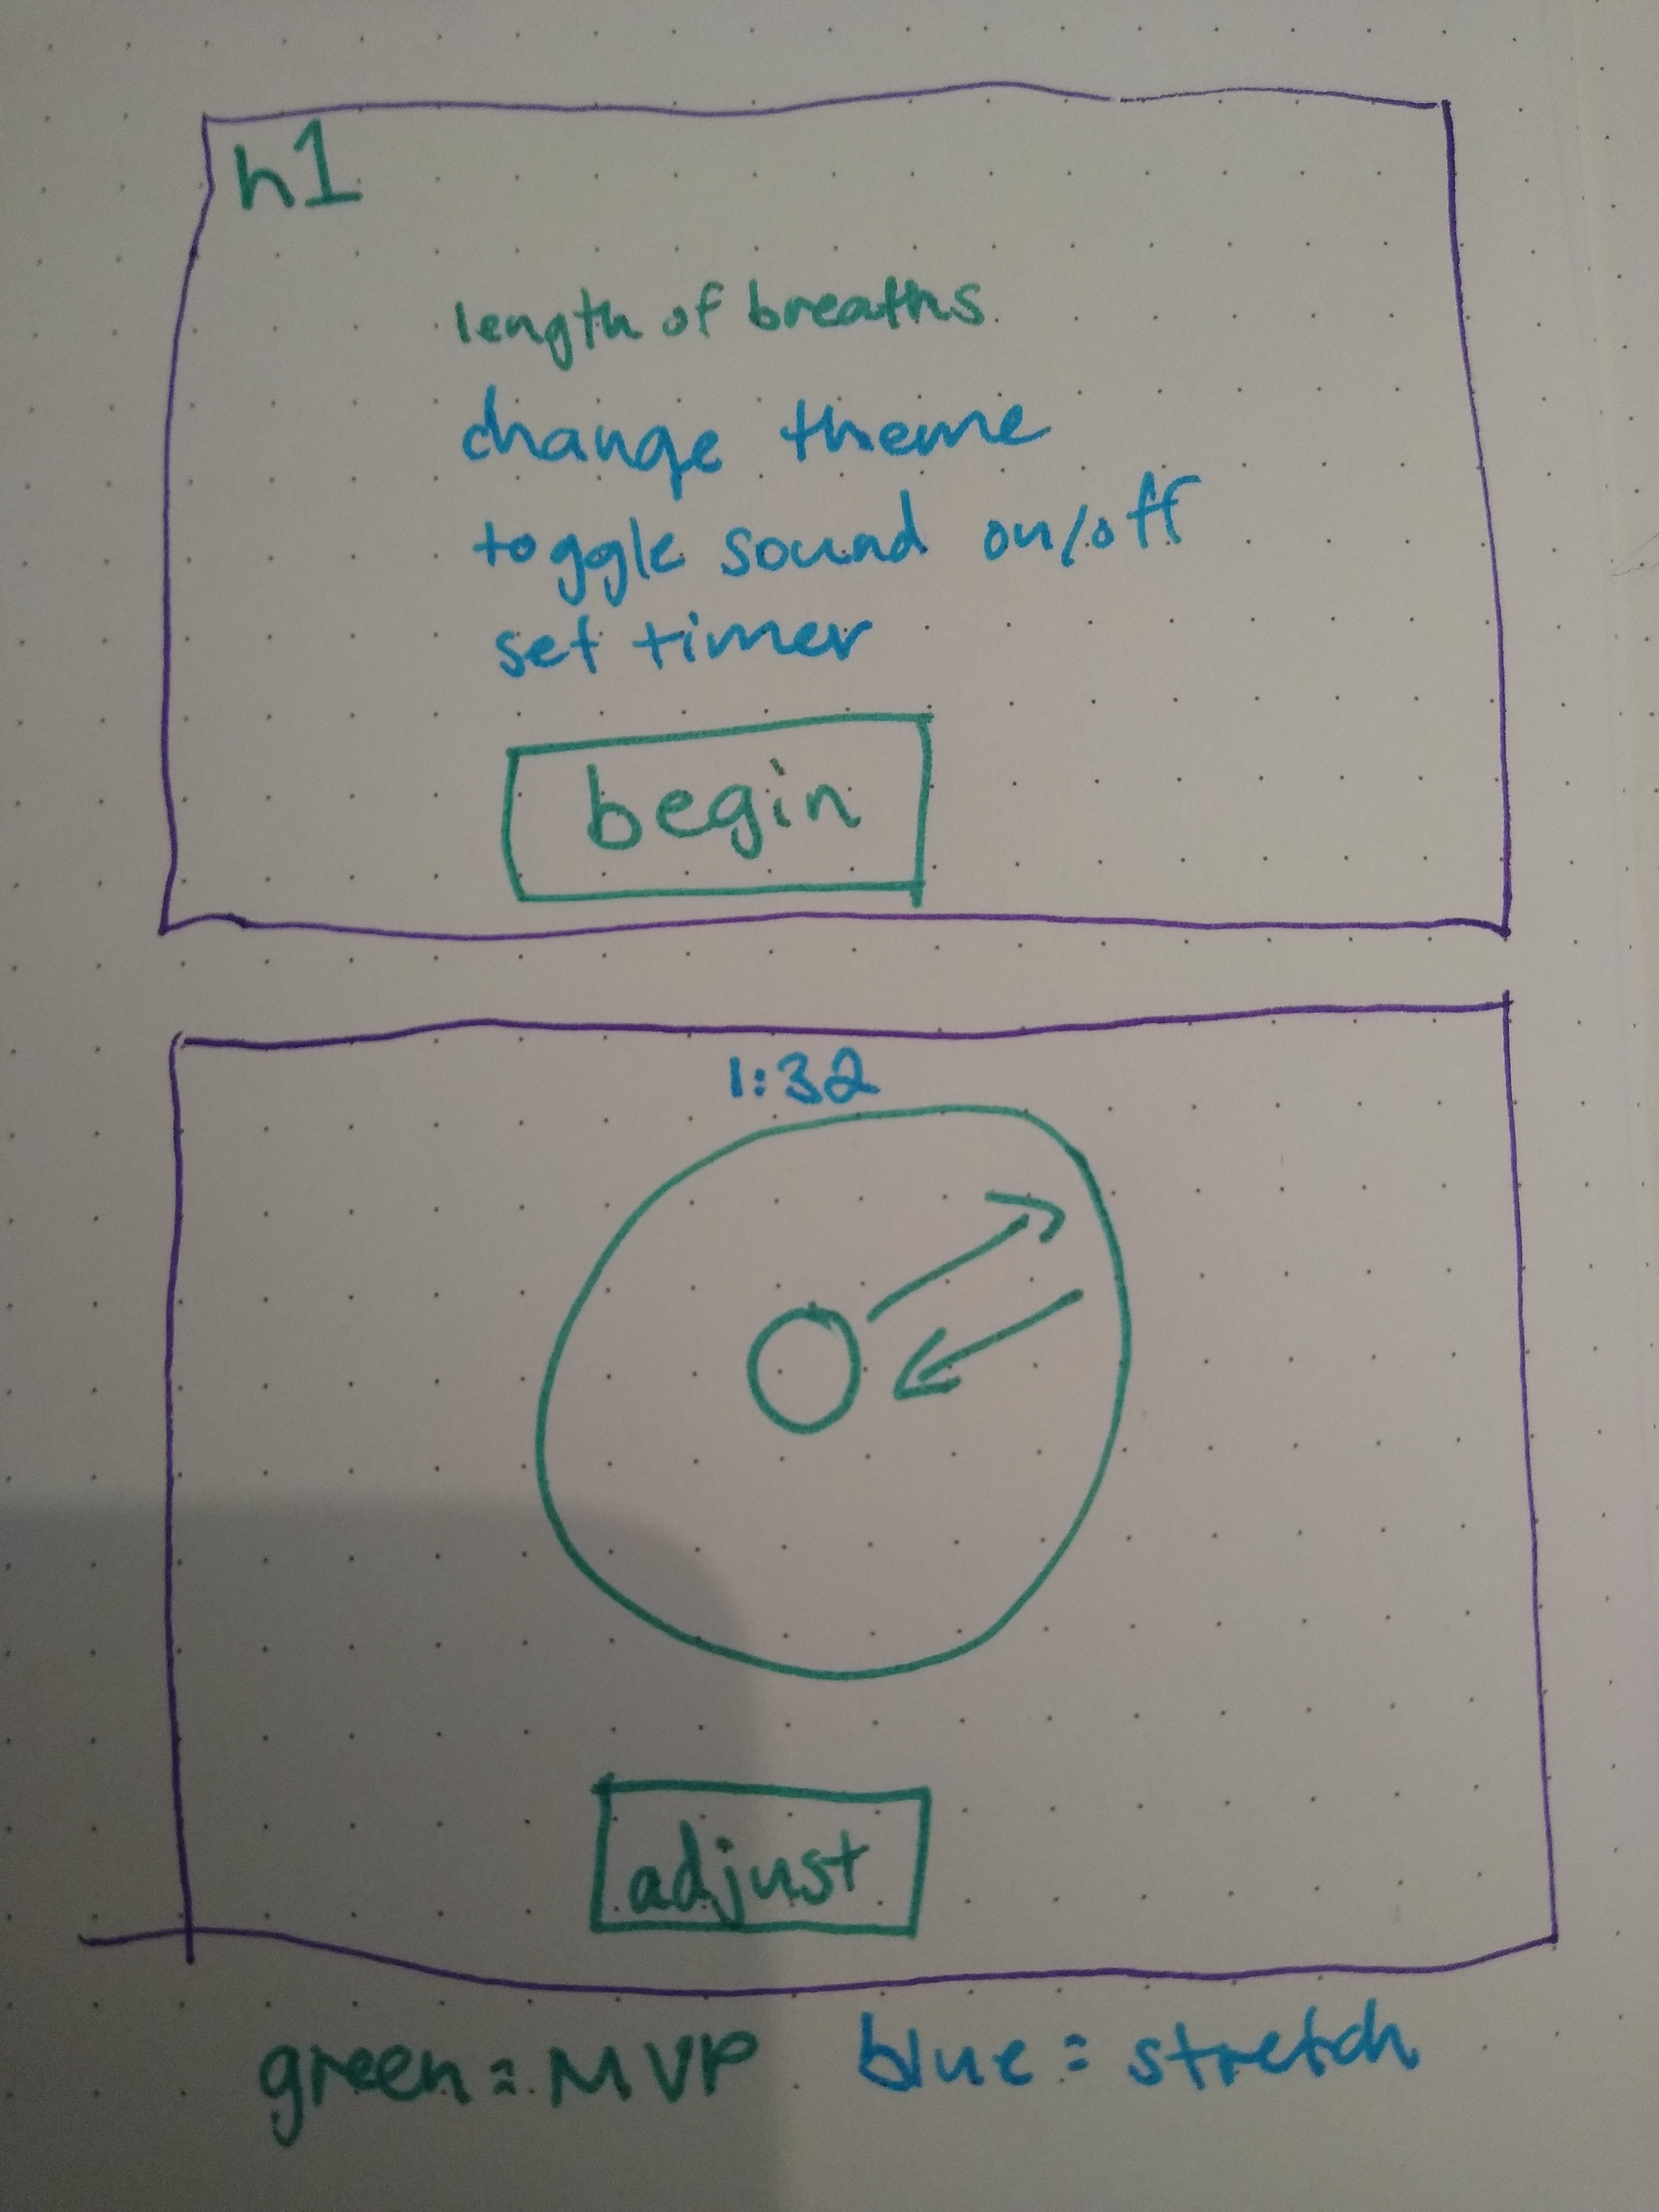 h1
length of breaths
change theme
toggle sound on/off
set timer
begin
1:32
adjust
green = MVP blue = stretch